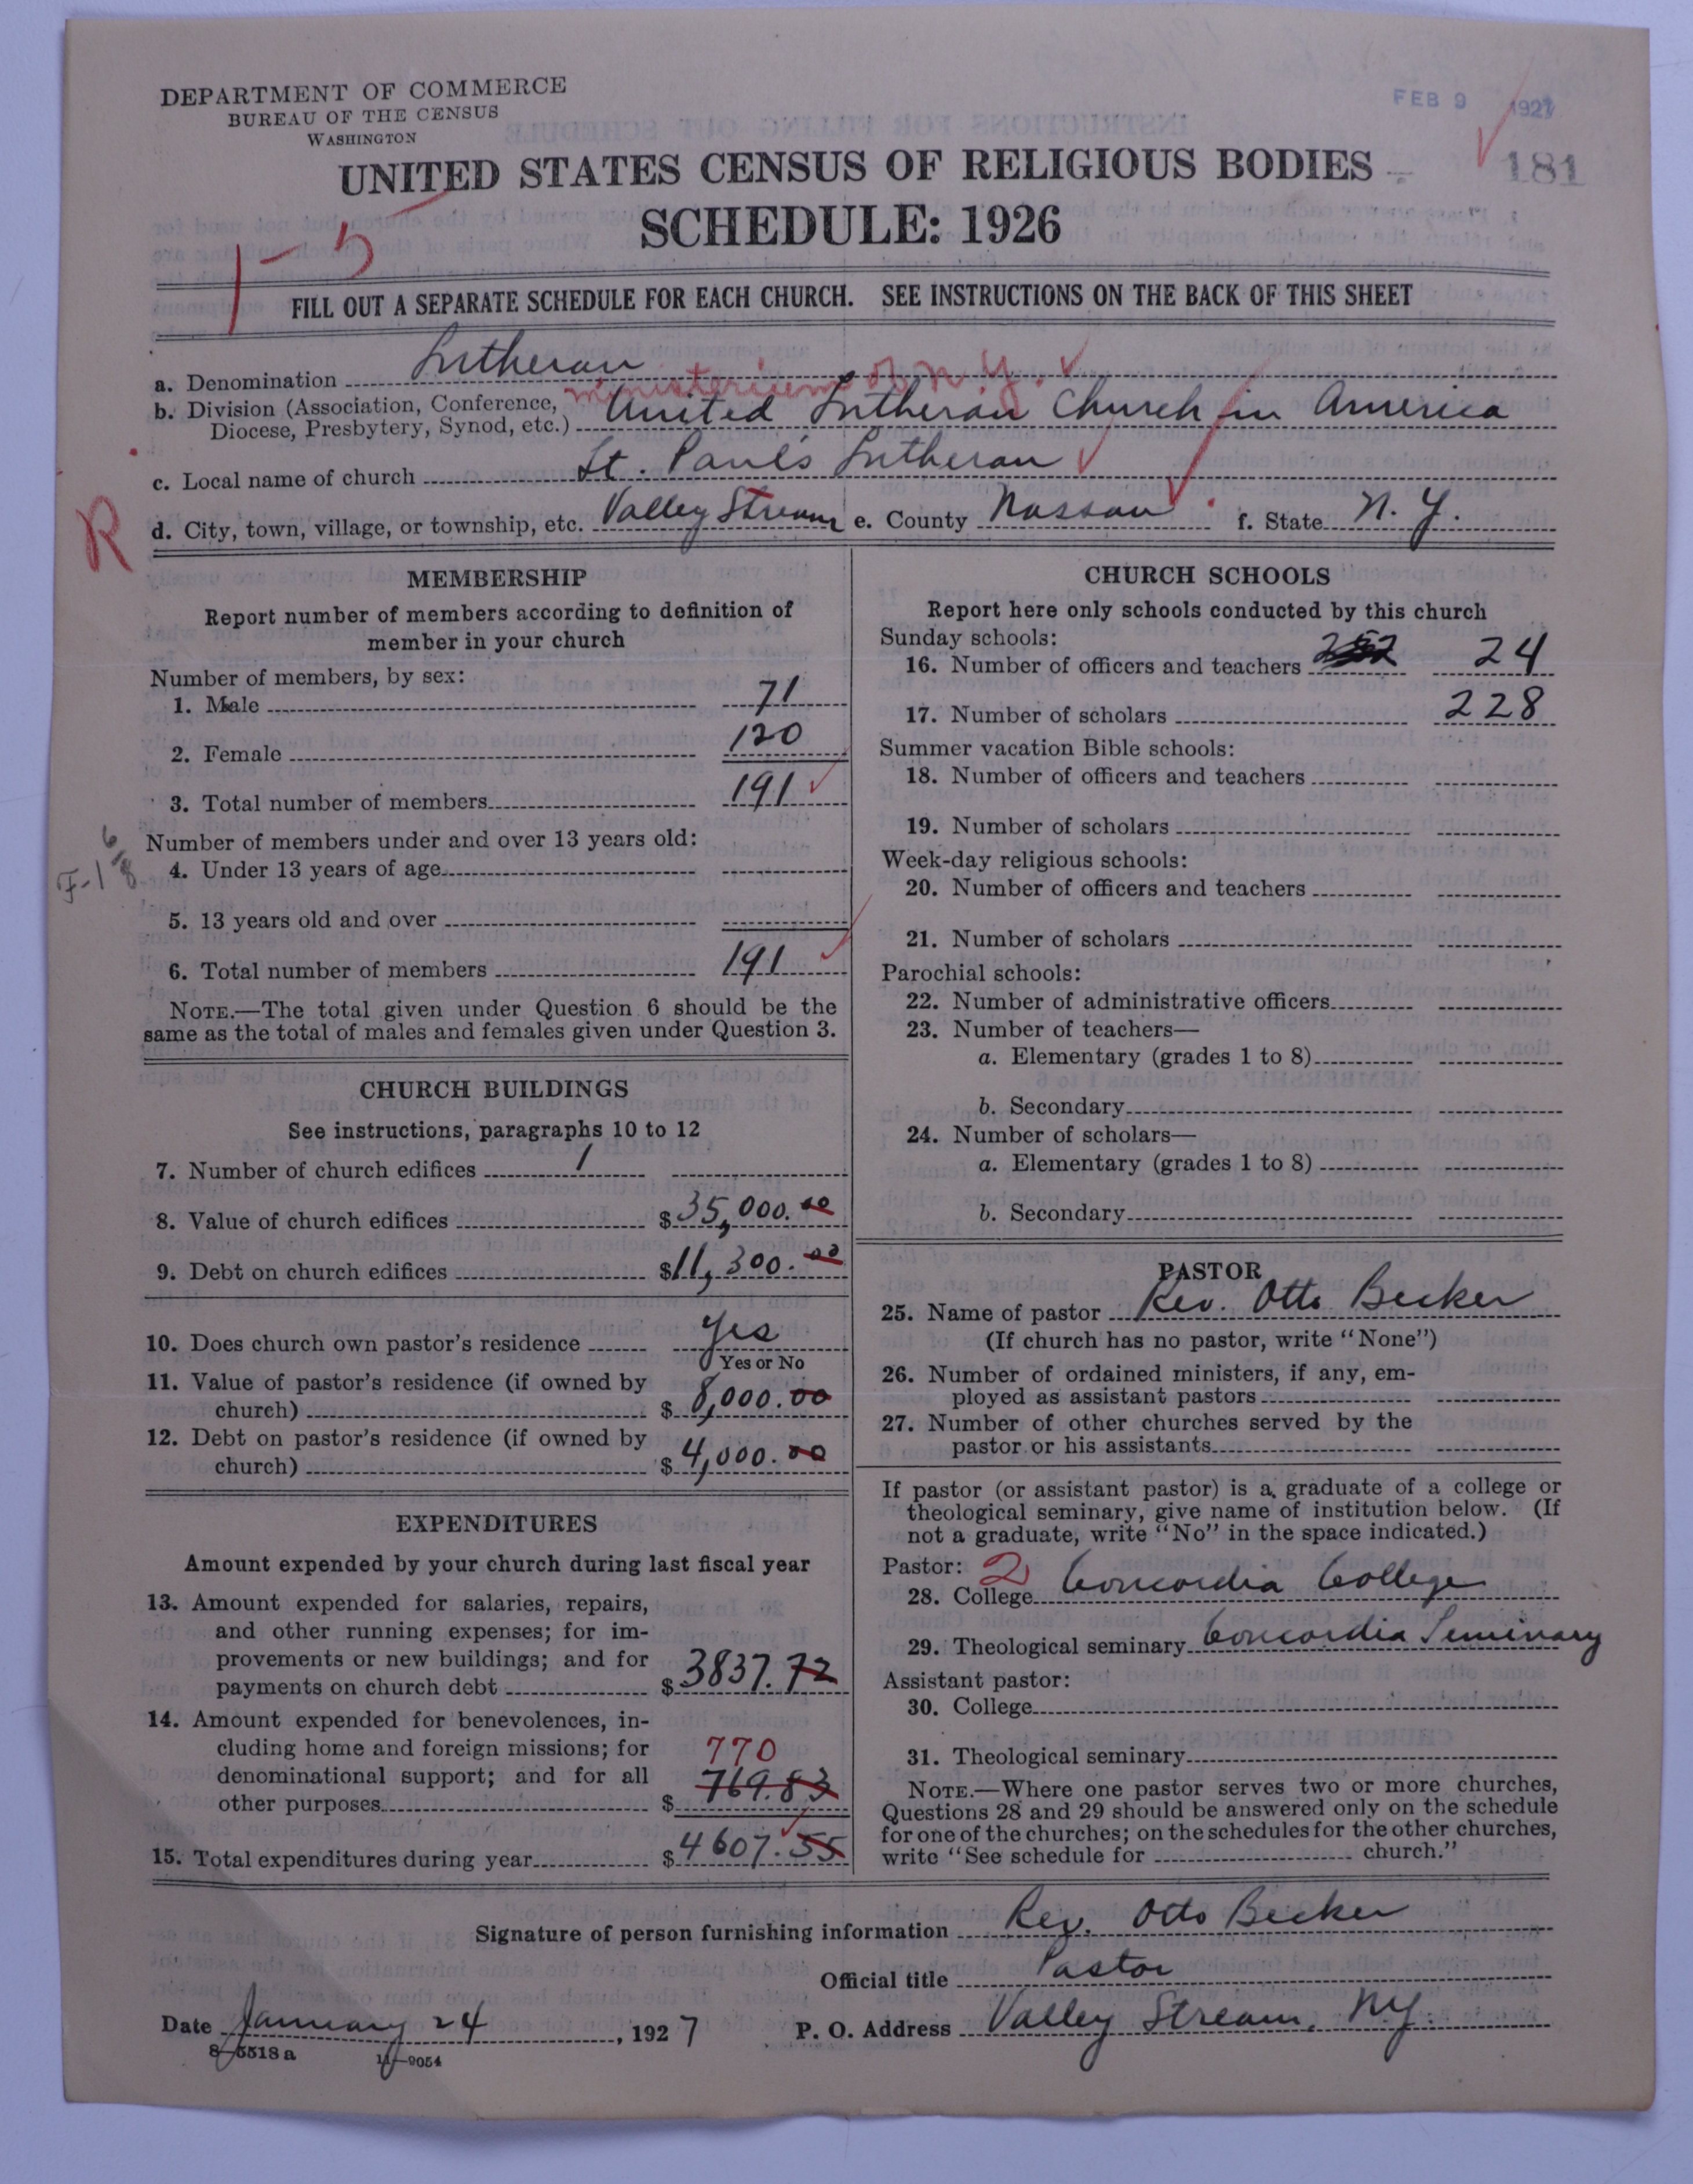 DEPARTMENT OF COMMERCE
BUREAU OF THE CENSUS
WASHINGTON
FEB 9 1927
181
UNITED STATES CENSUS OF RELIGIOUS BODIES
SCHEDULE: 1926
1-5
FILL OUT A SEPARATE SCHEDULE FOR EACH CHURCH. SEE INSTRUCTIONS ON THE BACK OF THIS SHEET
a. Denomination Lutheran
ministerium of N.Y.
b. Division (Association, Conference, Diocese, Presbytery, Synod, etc.) United Lutheran Church in America
c. Local name of church St. Paul's Lutheran
d. City, town, village, or township, etc. Valley Stream e. County Nassau f. State N.Y.
R
MEMBERSHIP
Report number of members according to definition of
member in your church
Number of members, by sex:
1. Male 71
2. Female 120
3. Total number of members 191
Number of members under and over 13 years old:
4. Under 13 years of age
5. 13 years old and over
6. Total number of members 191
NOTE.—The total given under Question 6 should be the
same as the total of males and females given under Question 3.
CHURCH BUILDINGS
See instructions, paragraphs 10 to 12
7. Number of church edifices 1
8. Value of church edifices $ 35,000.00
9. Debt on church edifices $ 11,300.00
10. Does church own pastor's residence yes
Yes or No
11. Value of pastor's residence (if owned by
church) $ 8,000.00
12. Debt on pastor's residence (if owned by
church) $ 4,000.00
EXPENDITURES
Amount expended by your church during last fiscal year
13. Amount expended for salaries, repairs,
and other running expenses; for im-
provements or new buildings; and for
payments on church debt $ 3837.72
14. Amount expended for benevolences, in-
cluding home and foreign missions; for
770
denominational support; and for all
other purposes $ 769.83
15. Total expenditures during year $ 4607.55
CHURCH SCHOOLS
Report here only schools conducted by this church
Sunday schools:
16. Number of officers and teachers 252 24
17. Number of scholars 228
Summer vacation Bible schools:
18. Number of officers and teachers
19. Number of scholars
Week-day religious schools:
20. Number of officers and teachers
21. Number of scholars
Parochial schools:
22. Number of administrative officers
23. Number of teachers—
a. Elementary (grades 1 to 8)
b. Secondary
24. Number of scholars—
a. Elementary (grades 1 to 8)
b. Secondary
PASTOR
25. Name of pastor Rev. Otto Becker
(If church has no pastor, write "None")
26. Number of ordained ministers, if any, em-
ployed as assistant pastors
27. Number of other churches served by the
pastor or his assistants
If pastor (or assistant pastor) is a graduate of a college or
theological seminary, give name of institution below. (If
not a graduate, write "No" in the space indicated.)
Pastor: 2
28. College Concordia College
29. Theological seminary Concordia Seminary
Assistant pastor:
30. College
31. Theological seminary
NOTE.—Where one pastor serves two or more churches,
Questions 28 and 29 should be answered only on the schedule
for one of the churches; on the schedules for the other churches,
write "See schedule for church."
Signature of person furnishing information Rev. Otto Becker
Official title Pastor
Date January 24, 1927 P. O. Address Valley Stream, N.Y.
8-5518 a 11-9054